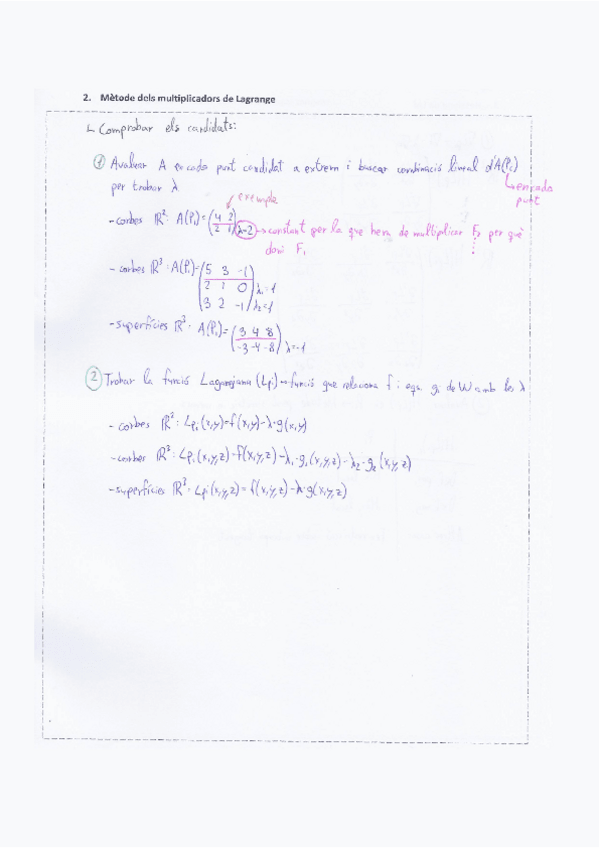 2. Mètode dels multiplicadors de Lagrange
↳ Comprobar els candidats:
① Avaluar A en cada punt candidat a extrem i buscar combinació lineal d'A(Pi)
↳ en cada punt
per trobar λ
exemple
- corbes ℝ²: A(P₁)=(4 2
2 1) λ=2 → constant per la que hem de multiplicar F₂ per què
doni F₁
- corbes ℝ³: A(P₁)=(5 3 -1
2 1 0) λ₁=1
3 2 -1) λ₂=1
- superfícies ℝ³: A(P₁)=(3 4 8
-3 -4 -8) λ=-1
② Trobar la funció Lagrangiana (Lpi) → funció que relaciona f i eqn gi de W amb les λ
- corbes ℝ²: Lpi(x,y)=f(x,y)-λ·g(x,y)
- corbes ℝ³: Lpi(x,y,z)=f(x,y,z)-λ₁·g₁(x,y,z)-λ₂·g₂(x,y,z)
- superfícies ℝ³: Lpi(x,y,z)=f(x,y,z)-λ·g(x,y,z)